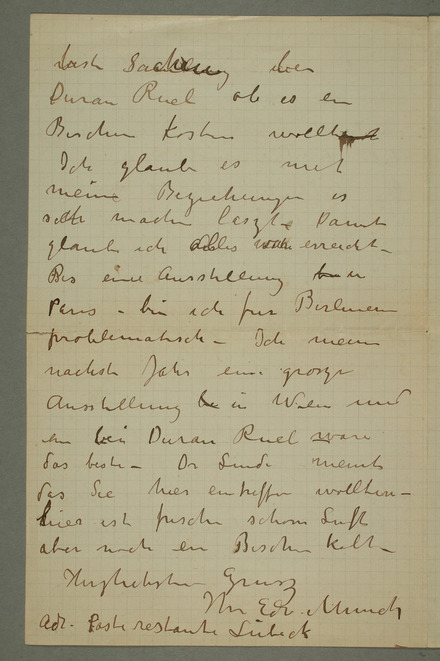 Duran Ruel ob es ein
Bischen kosten wollte
Ich glaube es mit
meine Beziehungen es
sich machen laszte Damit
glaube ich alles erreicht –
Bes eine Ausstellung in
Paris – bin ich fur Berliner
problematisch – Ich meine
nachste Jahr eine grosze
Ausstellung in Wien und
ein bei Duran Ruel ware
das beste – Dr Linde meint
das Sie hier eintreffen wollten –
hier ist frische schöne Luft
aber noch ein Bischen kalt –
Herzlichsten Grusz
Ihr Edv. Munch
Adr. Poste restante Lübeck